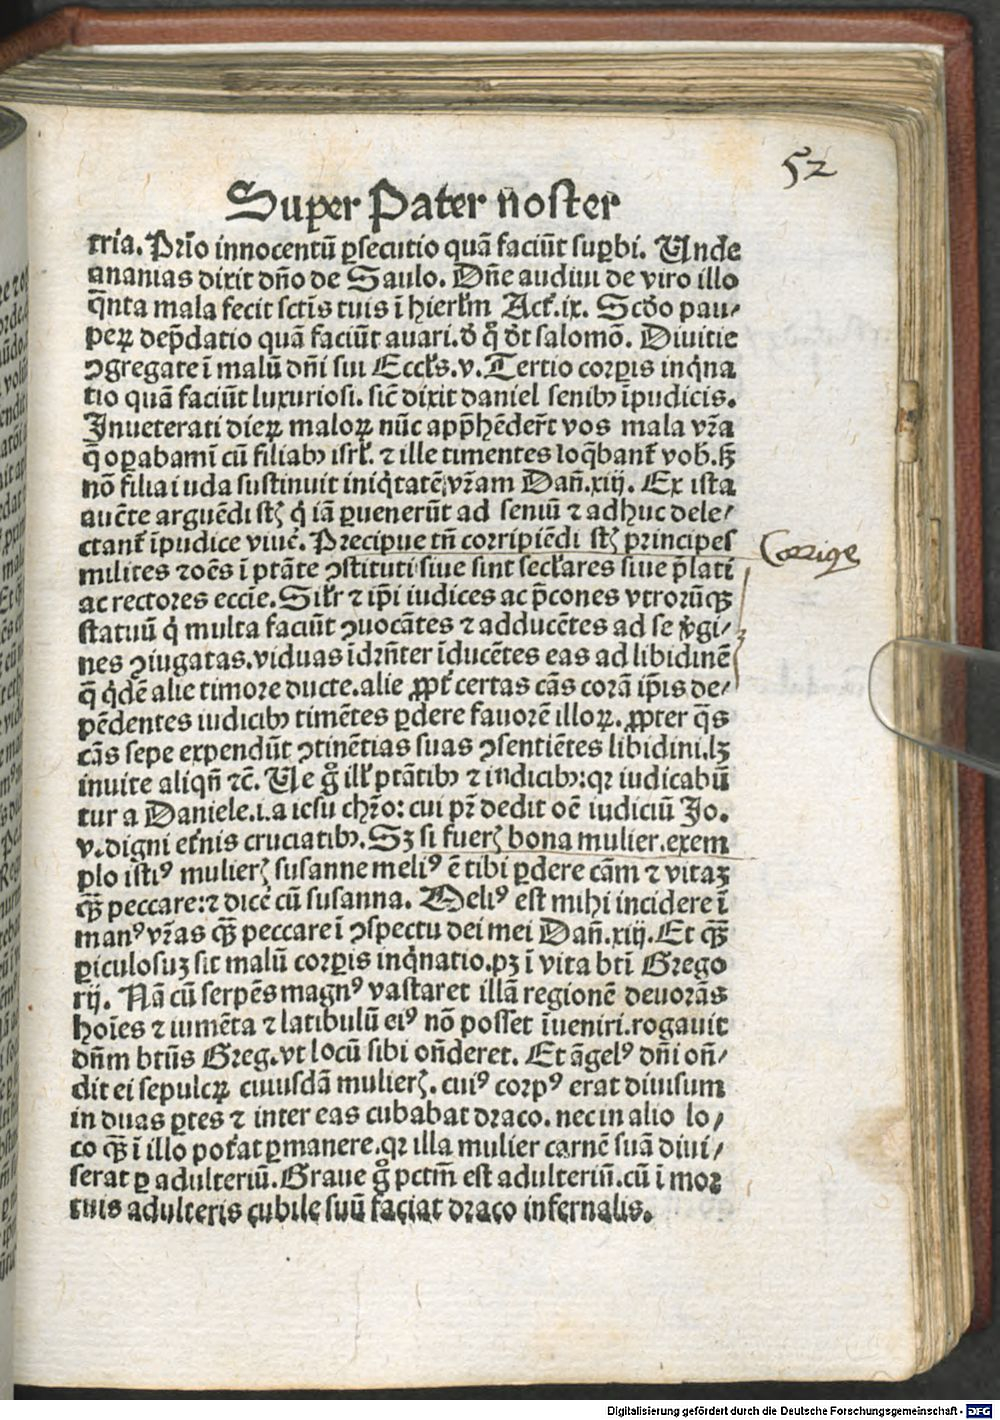 52
Super Pater noster
tria. Prīo innocentū ꝑsecutio quā faciūt suꝑbi. Unde
ananias dixit dn̄o de Saulo. Dn̄e audiui de viro illo
q̄nta mala fecit sctīs tuis ī hierłm Act̄. ix. Scd̄o pau⸗
peꝝ dep̄datio quā faciūt auari. ꝺ̄ q̊ dt̄ salomō. Diuitie
ꝯgregate ī malū dn̄i sui Eccłs. v. Tertio corꝑis inqͥna
tio quā faciūt luxuriosi. sic̄ dixit daniel senibꝫ īpudicis.
Inueterati dieꝝ maloꝝ nūc app̄hēder̄t vos mala vr̄a
q̄ oꝑabamī cū filiabꝫ isrł. ⁊ ille timentes loq̄bant̄ vob̄. sꝫ
nō filia iuda sustinuit iniqͥtatē vr̄am Dan̄. xiij. Ex ista
aucte arguēdi st̄ qͥ iā ꝑuenerūt ad seniū ⁊ adhuc dele⸗
ctant̄ īpudice viue̅. Precipue tn̄ corripiēdi st̄ principes
milites ⁊ oēs ī ptāte ꝯstituti siue sint secłares siue p̄lati
ac rectores eccīe. Siłr ⁊ ip̄i iudices ac p̄cones vtrorūqꝫ
statuū qͥ multa faciūt ꝯuocātes ⁊ adducētes ad se ꝟgi⸗
nes ꝯiugatas. viduas īdrn̄ter īducētes eas ad libidinē
q̄ qͥdē alie timore ducte. alie ꝓpt̄ certas cās corā ip̄is de⸗
pēdentes iudicibꝫ timētes ꝑdere fauorē illoꝝ. ꝓpter q̄s
cās sepe expendūt ꝯtinētias suas ꝯsentiētes libidini. lꝫ
inuite aliqn̄ ⁊c̄. Ue gͦ iłł ptātibꝫ ⁊ iudicibꝫ: qꝛ iudicabū
tur a Daniele. i. a iesu chr̄o: cui pr̄ dedit oē iudiciū Jo.
v. digni et̄nis cruciatibꝫ. Sꝫ si fuerꝭ bona mulier. exem
plo istiꝰ mulierꝭ susanne meliꝰ ē tibi ꝑdere cām ⁊ vitaꝫ
qꝫ̄ peccare: ⁊ dice̅ cū susanna. Meliꝰ est mihi incidere ī
manꝰ vr̄as qꝫ̄ peccare ī ꝯspectu dei mei Dan̄. xiij. Et qꝫ̄
ꝑiculosuꝫ sit malū corꝑis inqͥnatio. pꝫ ī vita bt̄i Grego
rij. Nā cū serpēs magnꝰ vastaret illā regionē deuorās
hoīes ⁊ iumēta ⁊ latibulū eiꝰ nō posset īueniri. rogauit
dn̄m bt̄us Greg. vt locū sibi on̄deret. Et āgelꝰ dn̄i on̄⸗
dit ei sepulcꝝ cuiusdā mulierꝭ. cuiꝰ corpꝰ erat diuisum
in duas ꝑtes ⁊ inter eas cubabat draco. nec in alio lo⸗
co qꝫ̄ ī illo pot̄at ꝑmanere. qꝛ illa mulier carnē suā diui⸗
serat ꝑ adulteriū. Graue gͦ pctm̄ est adulteriū. cū ī mor
tuis adulteris cubile suū faciat draco infernalis.
Corrige
Digitalisierung gefördert durch die Deutsche Forschungsgemeinschaft - DFG